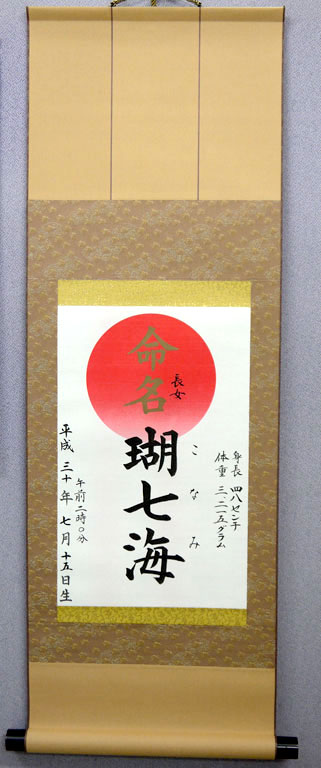 身長 四八センチ
体重 三、二一五グラム
命名
長女
瑚七海
こなみ
午前二時〇分
平成三十年七月十五日生